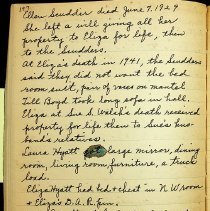 Ellen Scudder died June 7, 1929
She left a will giving all her
property to Eliza for life, then
to the Scudders.
At Eliza's death in 1941, the Scudders
said they did not want the bed
room suit, pair of vases on mantel
Till Boyd took long sofa in hall.
Eliza at Sue S. Welch's death received
property for life then to Sue's hus-
band's relatives.
Laura Hyatt large mirror, dining
room, living room furniture, a truck
load.
Eliza Hyatt had bed + chest in N.W room
+ Eliza's D.A.R. pin.